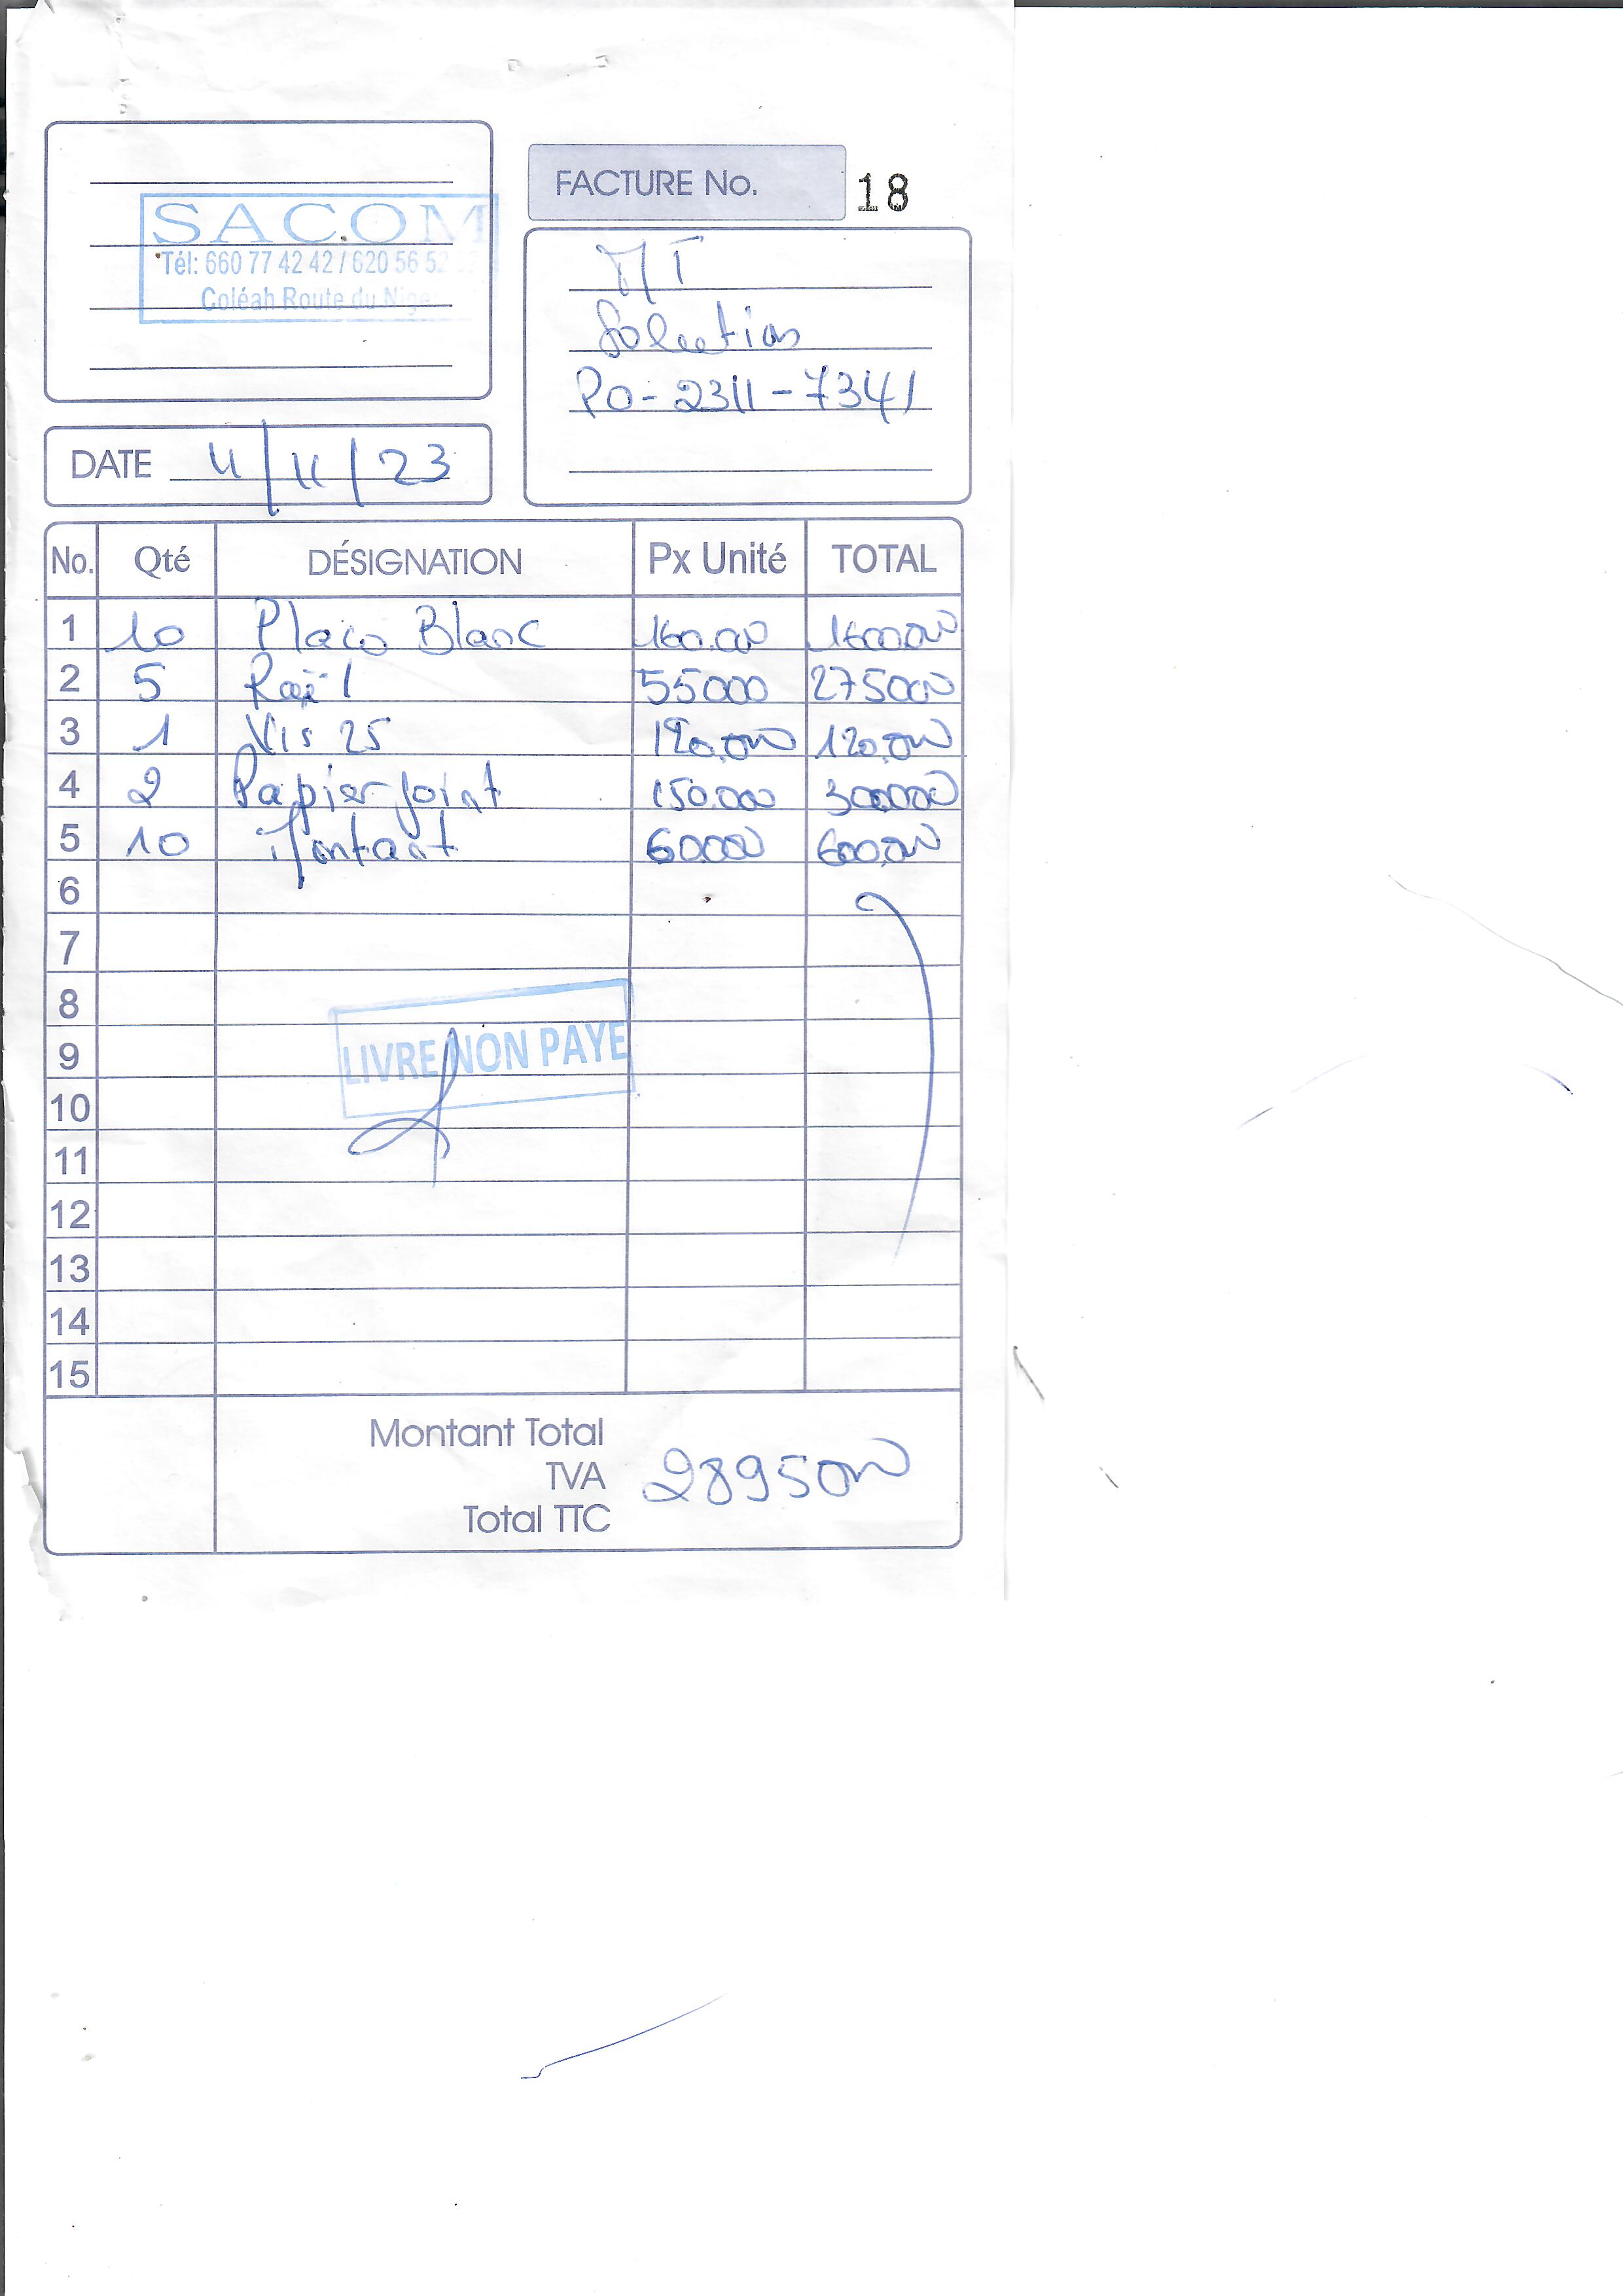 SACOM
Tél: 660 77 42 42 / 620 56 52
Coléah Route du Niger
FACTURE No. 18
MT
Solution
PO-2311-7341
DATE 11/11/23
No. Qté DÉSIGNATION Px Unité TOTAL
1 10 Placo Blanc 160.000 1600.000
2 5 Rail 55000 275000
3 1 Vis 25 120.000 120.000
4 2 Papier Joint 150.000 300000
5 10 Montant 60000 600.000
6
7
8
LIVRE NON PAYE
9
10
11
12
13
14
15
Montant Total
TVA 2895000
Total TTC